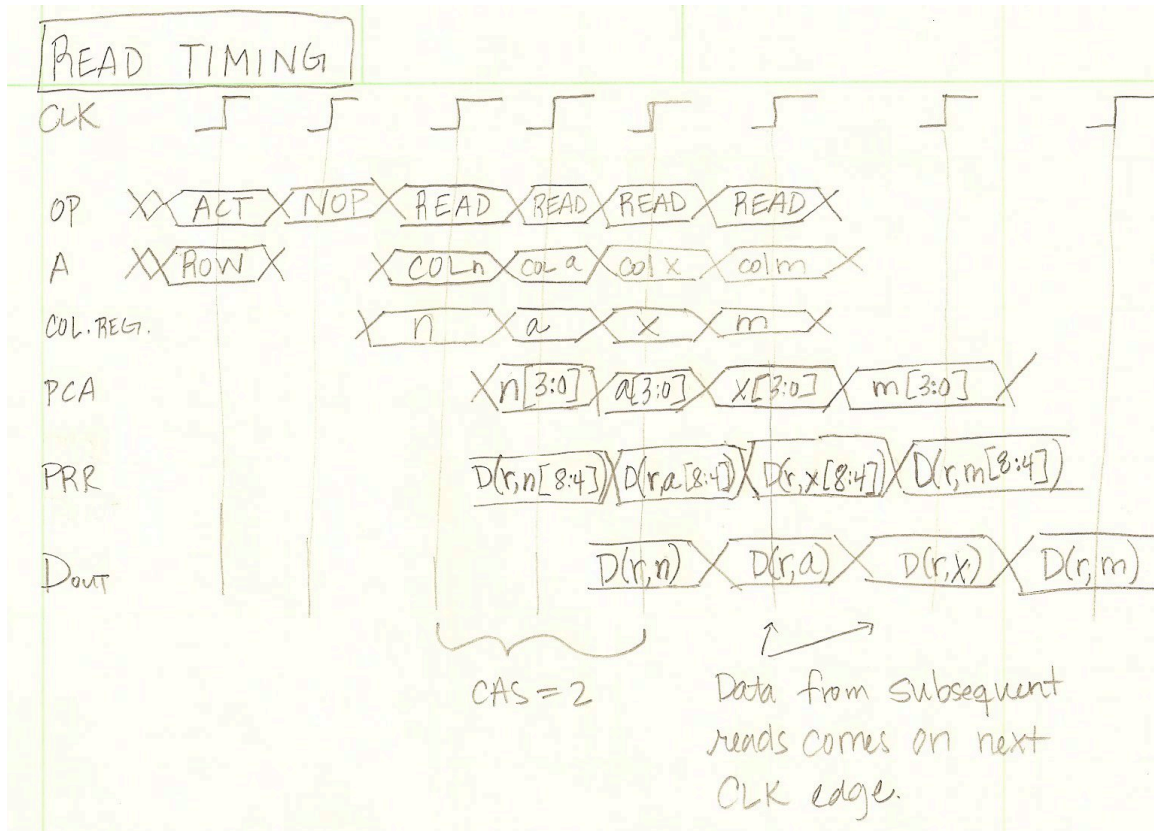 READ TIMING
CLK
OP XX ACT NOP READ READ READ READ
A XX ROW COLn COL a col x col m
COL. REG. n a x m
PCA n[3:0] a[3:0] x[3:0] m[3:0]
PRR D(r,n[8:4]) D(r,a[8:4]) D(r,x[8:4]) D(r,m[8:4])
DOUT D(r,n) D(r,a) D(r,x) D(r,m)
CAS = 2
Data from subsequent
reads comes on next
CLK edge.